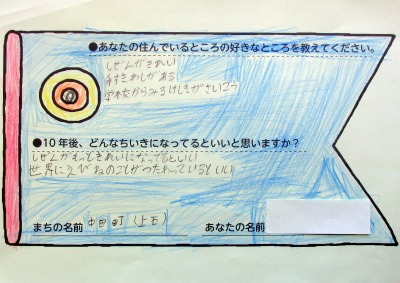 ●あなたの住んでいるところの好きなところを教えてください。
しぜんがきれい
手すきわしがある
学校からみるけしきがさいこう
●10年後、どんなちいきになってるといいと思いますか？
しぜんがもっときれいになってるといい
世界にえびねのことがつたわっているといい
まちの名前 中田町(上石)
あなたの名前